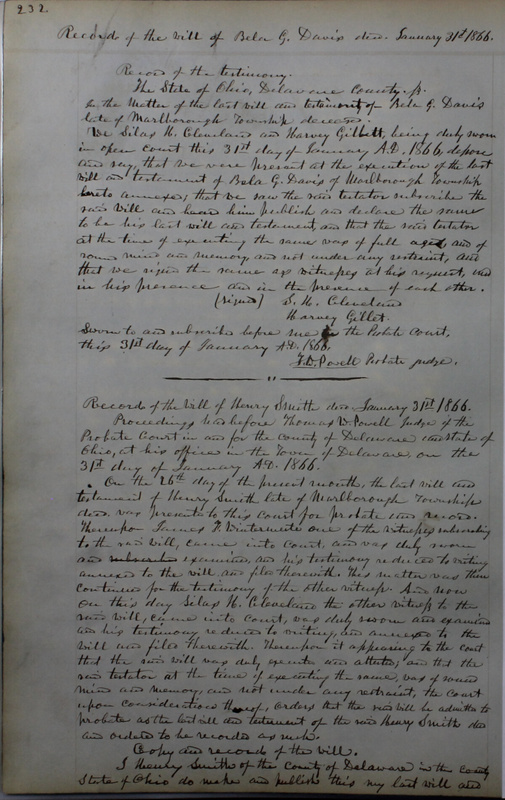 232.
Record of the will of Bela G. Davis decd. January 31st 1866.
Record of the testimony.
The State of Ohio, Delaware County, ss.
In the Matter of the last will and testament of Bela G. Davis
late of Marlborough Township deceased.
We Silas H. Cleveland and Harvey Gillett, being duly sworn
in open court this 31st day of January A.D. 1866, depose
and say, that we were present at the execution of the last
will and testament of Bela G. Davis of Marlborough Township
hereto annexed; that we saw the said testator subscribe the
said will and heard him publish and declare the same
to be his last will and testament, and that the said testator
at the time of executing the same was of full age and of
sound mind and memory, and not under any restraint, and
that we signed the same as witnesses at his request, and
in his presence and in the presence of each other.
(signed) S. H. Cleveland
Harvey Gillet.
Sworn to and subscribed before me in the Probate Court,
this 31st day of January A.D. 1866.
T. W. Powell Probate judge.
Record of the will of Henry Smith decd. January 31st 1866.
Proceedings was before Thomas W. Powell Judge of the
Probate Court in and for the county of Delaware and state of
Ohio, at his office in the Town of Delaware, on the
31st day of January A.D. 1866.
On the 26th day of the present month, the last will and
testament of Henry Smith late of Marlborough Township
decd. was presented to this court for probate and record.
Thereupon James F. Wintermute one of the witnesses subscribing
to the said will, came into court, and was duly sworn
and subscribed examined, and his testimony reduced to writing
annexed to the will and filed therewith. This matter was then
continued for the testimony of the other witness. And now
on this day Silas H. Cleveland the other witness to the
said will, came into court, was duly sworn and examined
and his testimony reduced to writing, and annexed to the
will and filed therewith. Thereupon it appearing to the court
that the said will was duly executed and attested; and that the
said testator at the time of executing the same, was of sound
mind and memory, and not under any restraint, the court
upon consideration thereof, orders that the said will be admitted to
probate as the last will and testament of the said Henry Smith decd
and ordered to be recorded as such.
Copy and record of the will.
I Henry Smith of the county of Delaware in the county
State of Ohio do make and publish this my last will and